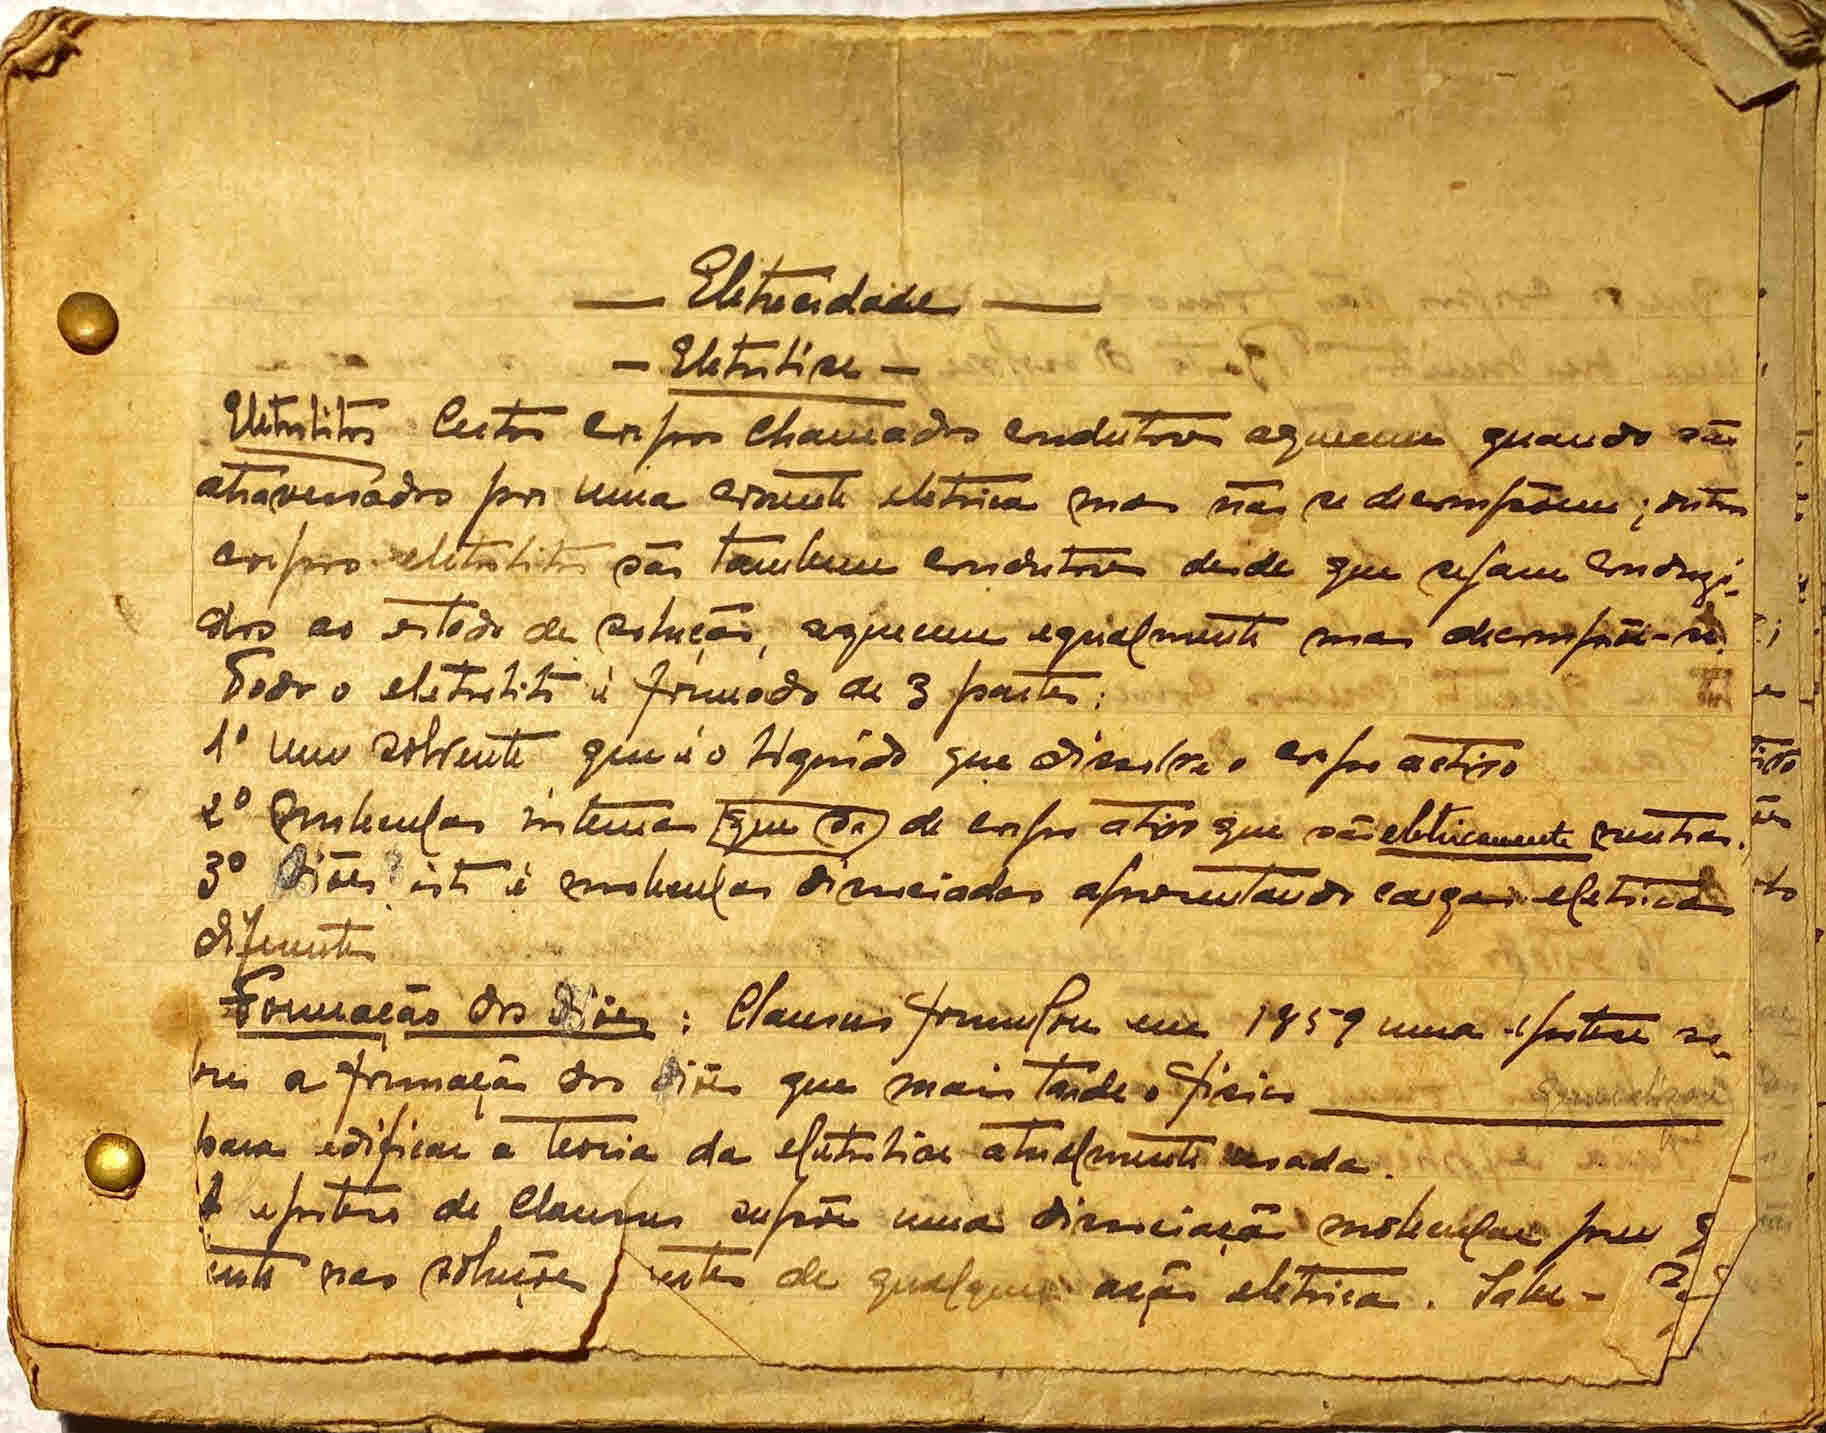 — Eletrecidade —
- Eletrolise -
Eletrolitos Certos corpos chamados condutores aquecem quando são
atravessados por uma corrente eletrica mas não se decompõem; outros
corpos eletrolitos são tambem condutores desde que sejam conduzi-
dos ao estado de solução, aquecem egualmente mas decompõe-se.
Todo o eletrolito é formado de 3 partes:
1º um solvente que é o liquido que dissolve o corpo activo
2º moleculas internas que da de corpo ativo que são eletricamente neutras.
3º iões isto é moleculas dissociadas apresentando cargas eletricas
diferentes
Formação dos iões: Clausius formulou em 1859 uma epotese so-
bre a formação dos iões que mais tarde o fisico
para edificar a teoria da eletrolise atualmente usada.
A epotese de Clausius supõe uma dissociação molecular
nas soluções antes de qualquer ação eletrica. Sabe-